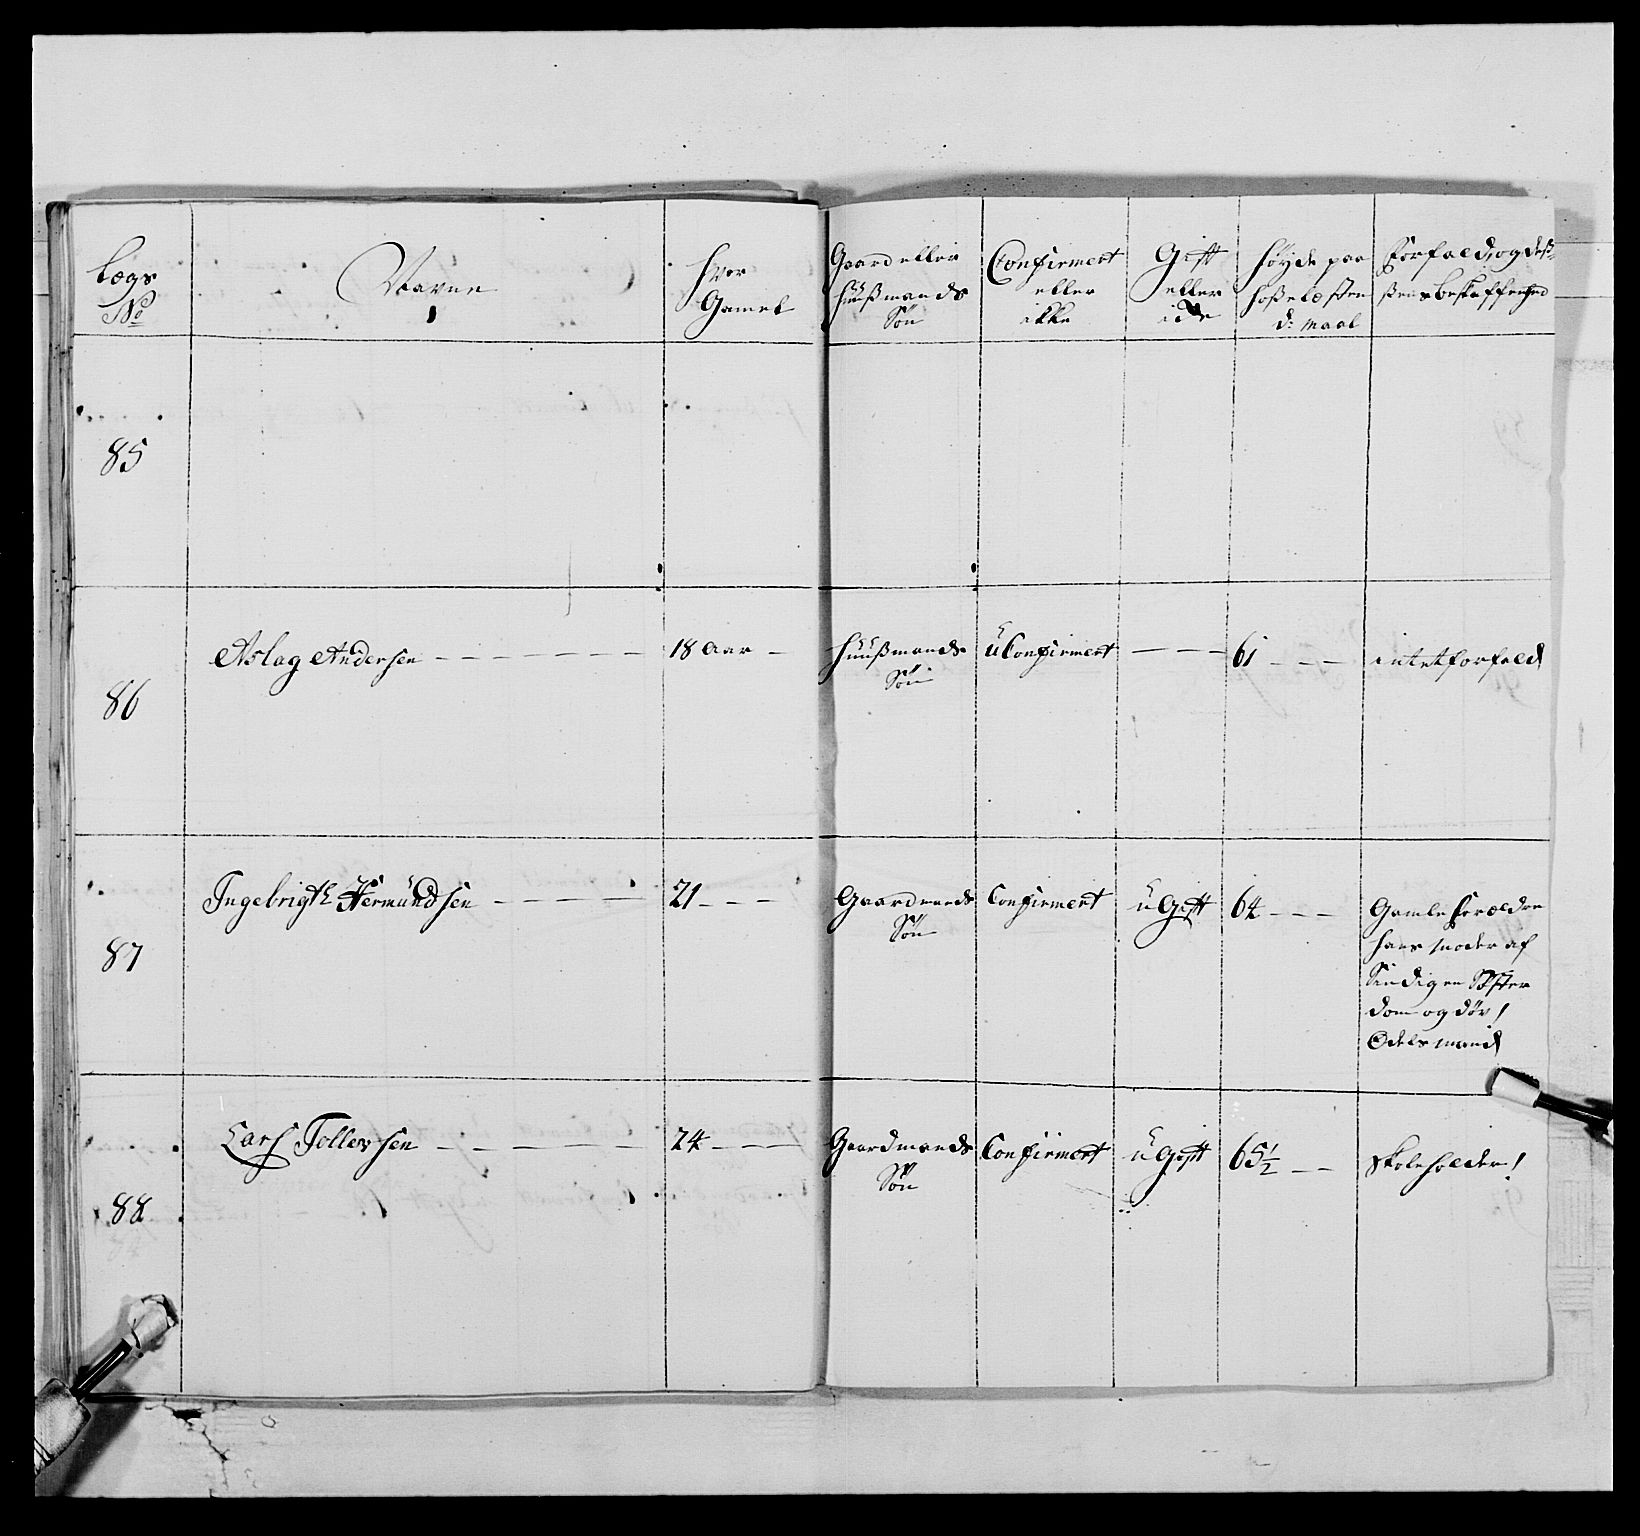 Lægs
No
Navne
Hvor
Gamel
Gaard eller
Huußmands
Søn
Confirmert
eller
ikke
Gift
eller
Høyde paa
Hoßelæsten
d: maal
Forfald, og deß-
ßens beskaffenhed
85
86
Aslag Andersen
18 Aar
Huußmands
Søn
uConfirmert
61
intet forfald
87
Ingebrigth Hermundsen
21
Gaardmands
Søn
Confirmert
uGift
64
Gamle forældre
hans moder af
Sindig en
dom og døv!
Odelsmand
88
Lars Tollevsen
24
Gaardmands
Søn
Confirmert
uGift
65½
Skoleholder!